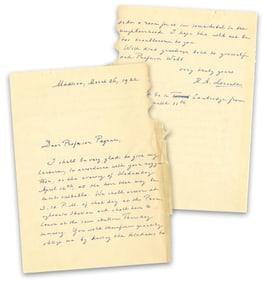 Madison, March 26, 1922
Dear Professor Pegram,
I shall be very glad to give my
lecture, in accordance with your sugges-
tion, on the evening of Wednesday
April 12th at the hour that may be
most suitable. We shall arrive at
3.10 P.M. of that day at the Penn-
sylvania Station and shall have to
leave at the same station Thursday
morning. You will therefore greatly
oblige me by having the kindness to
order a room for us somewhere in the
neighbourhood. I hope this will not be
too troublesome to you.
With kind greetings both to yourself
and Professor Wills
very truly yours
H.A. Lorentz
be in Cambridge from
until 11th